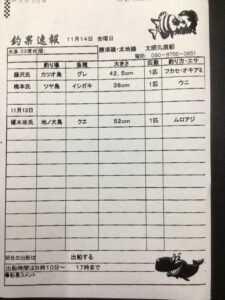 釣果速報 11月14日 金曜日
水温 22度位
勝浦磯・太地磯 太郎丸渡船
釣り場 魚種 大きさ 匹数 釣り方・エサ
藤沢氏 カツオ島 グレ 42.5cm 1匹 フカセ・オキアミ
梅本氏 ツヤ島 イシガキ 38cm 1匹 ウニ
11月13日
榎木谷氏 地ノ大島 クエ 52cm 1匹 ムロアジ
明日の出船は 出船する
出船時間は6時10分～ 17時まで
●船長コメント